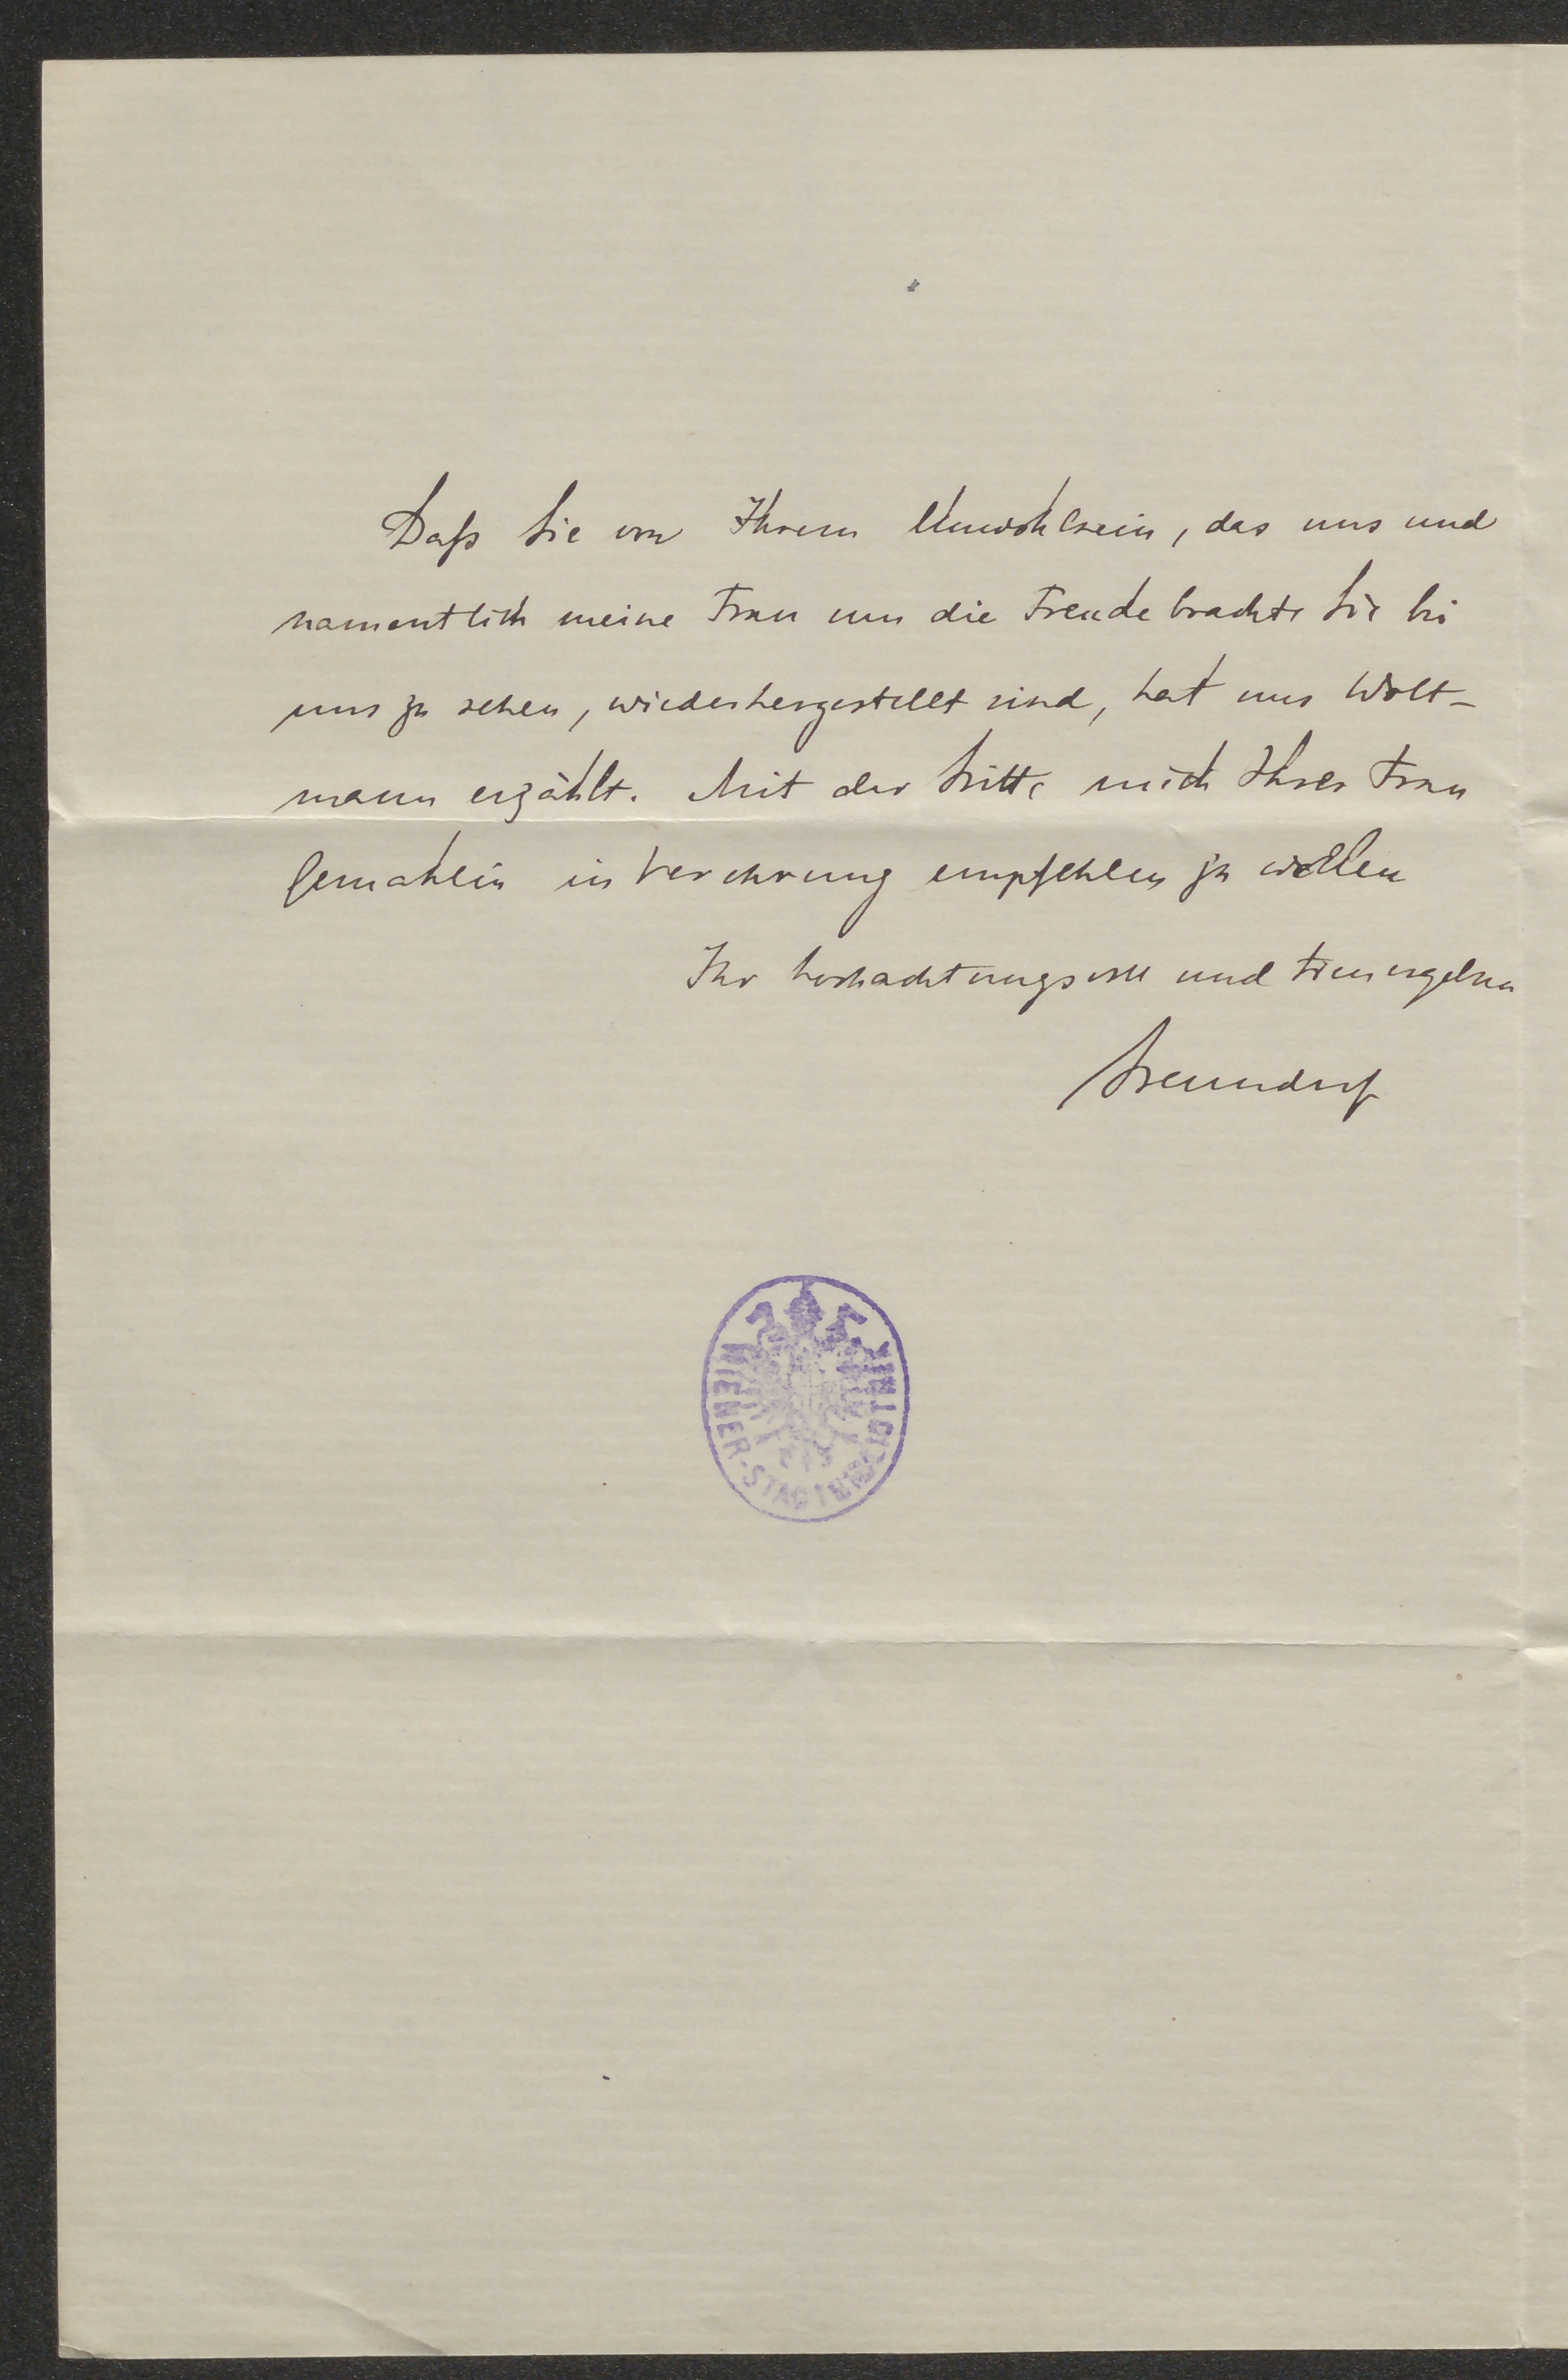 Daß Sie von Ihrem Unwohlsein, das uns und
namentlich meine Frau um die Freude brachte Sie bei
uns zu sehen, wiederhergestellt sind, hat uns Wolt-
mann erzählt. Mit der Bitte mich Ihrer Frau
Gemahlin in Verehrung empfehlen zu wollen
Ihr hochachtungsvoll und treu ergebner
Benndorf
WIENER-STADTBIBLIOTHEK